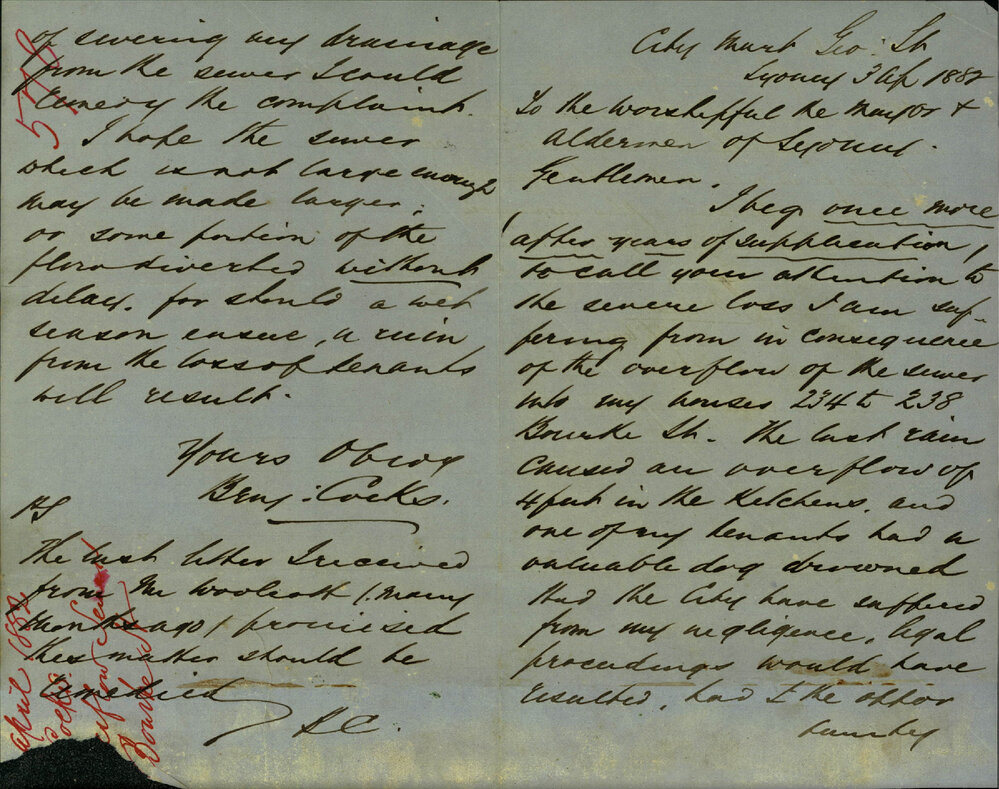 City Mart Geo: St
Sydney 3 Ap 1882
To the Worshipful the Mayor &
Aldermen of Sydney.
Gentlemen.
I beg once more
(after years of supplication,
to call your attention to
the severe loss I am suf-
fering from in consequence
of the overflow of the sewer
into my houses 234 to 238
Bourke St. The last rain
caused an overflow of
4 feet in the Kitchens, and
one of my tenants had a
valuable dog drowned
Had the City have suffered
from my negligence, legal
proceedings would have
resulted, had I the oppor
tunity
of severing my drainage
from the sewer I could
remedy the complaint.
I hope the sewer
which is not large enough
may be made larger,
or some portion of the
flow diverted without
delay, for should a wet
season ensue, a ruin
from the loss of tenants
will result.
Yours Obidy
Benj: Cocks.
PS
The last letter I received
from Mr Woolcott (many
months ago) promised
this matter should be
remedied
B C.
578
April 1882
Cocks
Bourke St